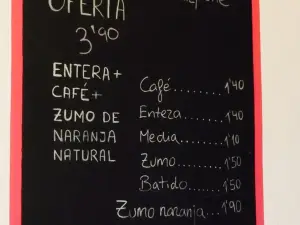 OFERTA
3'90
ENTERA +
CAFÉ +
ZUMO DE
NARANJA
NATURAL
Café........1'40
Enteza......1'40
Media.......1'10
Zumo........1'50
Batido......1'50
Zumo naranja...1'90